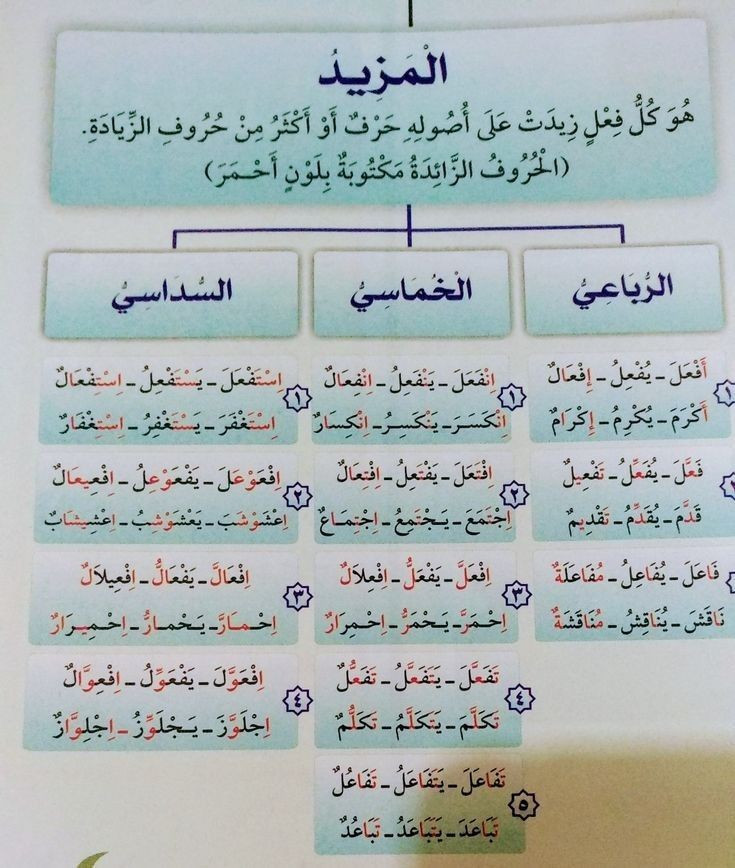 الْمَزِيدُ
هُوَ كُلُّ فِعْلٍ زِيدَتْ عَلَى أُصُولِهِ حَرْفٌ أَوْ أَكْثَرُ مِنْ حُرُوفِ الزِّيَادَةِ.
(الْحُرُوفُ الزَّائِدَةُ مَكْتُوبَةٌ بِلَوْنٍ أَحْمَرَ)
الرُّبَاعِيُّ
١
أَفْعَلَ - يُفْعِلُ - إِفْعَالٌ
أَكْرَمَ - يُكْرِمُ - إِكْرَامٌ
فَعَّلَ - يُفَعِّلُ - تَفْعِيلٌ
قَدَّمَ - يُقَدِّمُ - تَقْدِيمٌ
فَاعَلَ - يُفَاعِلُ - مُفَاعَلَةٌ
نَاقَشَ - يُنَاقِشُ - مُنَاقَشَةٌ
الْخُمَاسِيُّ
١
اِنْفَعَلَ - يَنْفَعِلُ - اِنْفِعَالٌ
اِنْكَسَرَ - يَنْكَسِرُ - اِنْكِسَارٌ
٢
اِفْتَعَلَ - يَفْتَعِلُ - اِفْتِعَالٌ
اِجْتَمَعَ - يَجْتَمِعُ - اِجْتِمَاعٌ
٣
اِفْعَلَّ - يَفْعَلُّ - اِفْعِلاَلٌ
اِحْمَرَّ - يَحْمَرُّ - اِحْمِرَارٌ
٤
تَفَعَّلَ - يَتَفَعَّلُ - تَفَعُّلٌ
تَكَلَّمَ - يَتَكَلَّمُ - تَكَلُّمٌ
٥
تَفَاعَلَ - يَتَفَاعَلُ - تَفَاعُلٌ
تَبَاعَدَ - يَتَبَاعَدُ - تَبَاعُدٌ
السُّدَاسِيُّ
١
اِسْتَفْعَلَ - يَسْتَفْعِلُ - اِسْتِفْعَالٌ
اِسْتَغْفَرَ - يَسْتَغْفِرُ - اِسْتِغْفَارٌ
٢
اِفْعَوْعَلَ - يَفْعَوْعِلُ - اِفْعِيعَالٌ
اِعْشَوْشَبَ - يَعْشَوْشِبُ - اِعْشِيشَابٌ
٣
اِفْعَالَّ - يَفْعَالُّ - اِفْعِيلاَلٌ
اِحْمَارَّ - يَحْمَارُّ - اِحْمِيرَارٌ
٤
اِفْعَوَّلَ - يَفْعَوِّلُ - اِفْعِوَّالٌ
اِجْلَوَّزَ - يَجْلَوِّزُ - اِجْلِوَّازٌ